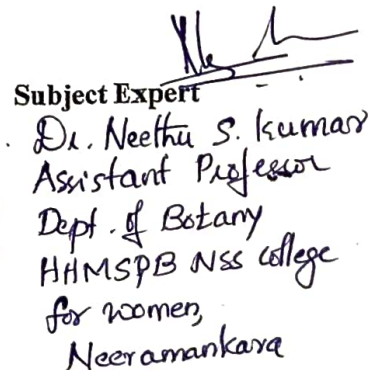 Subject Expert
Dr. Neethu S. Kumar
Assistant Professor
Dept. of Botany
HHMSPB NSS College
for women,
Neeramankara